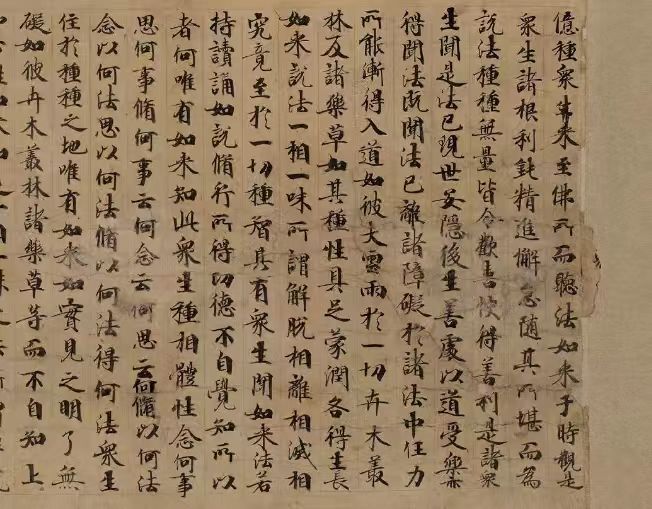 億種眾生來至佛所而聽法如來于時觀是
眾生諸根利鈍精進懈怠隨其所堪而為
說法種種無量皆令歡喜快得善利是諸眾
生聞是法已現世安隱後生善處以道受樂
得聞法既聞法已離諸障礙於諸法中任力
所能漸得入道如彼大雲雨於一切卉木叢
林及諸藥草如其種性具足蒙潤各得生長
如來說法一相一味所謂解脫相離相滅相
究竟至於一切種智其有眾生聞如來法若
持讀誦如說脩行所得功德不自覺知所以
者何唯有如來知此眾生種相體性念何事
思何事脩何事云何念云何思云何脩以何法
念以何法思以何法脩以何法得何法眾生
住於種種之地唯有如來如實見之明了無
礙如彼卉木叢林諸藥草等而不自知上